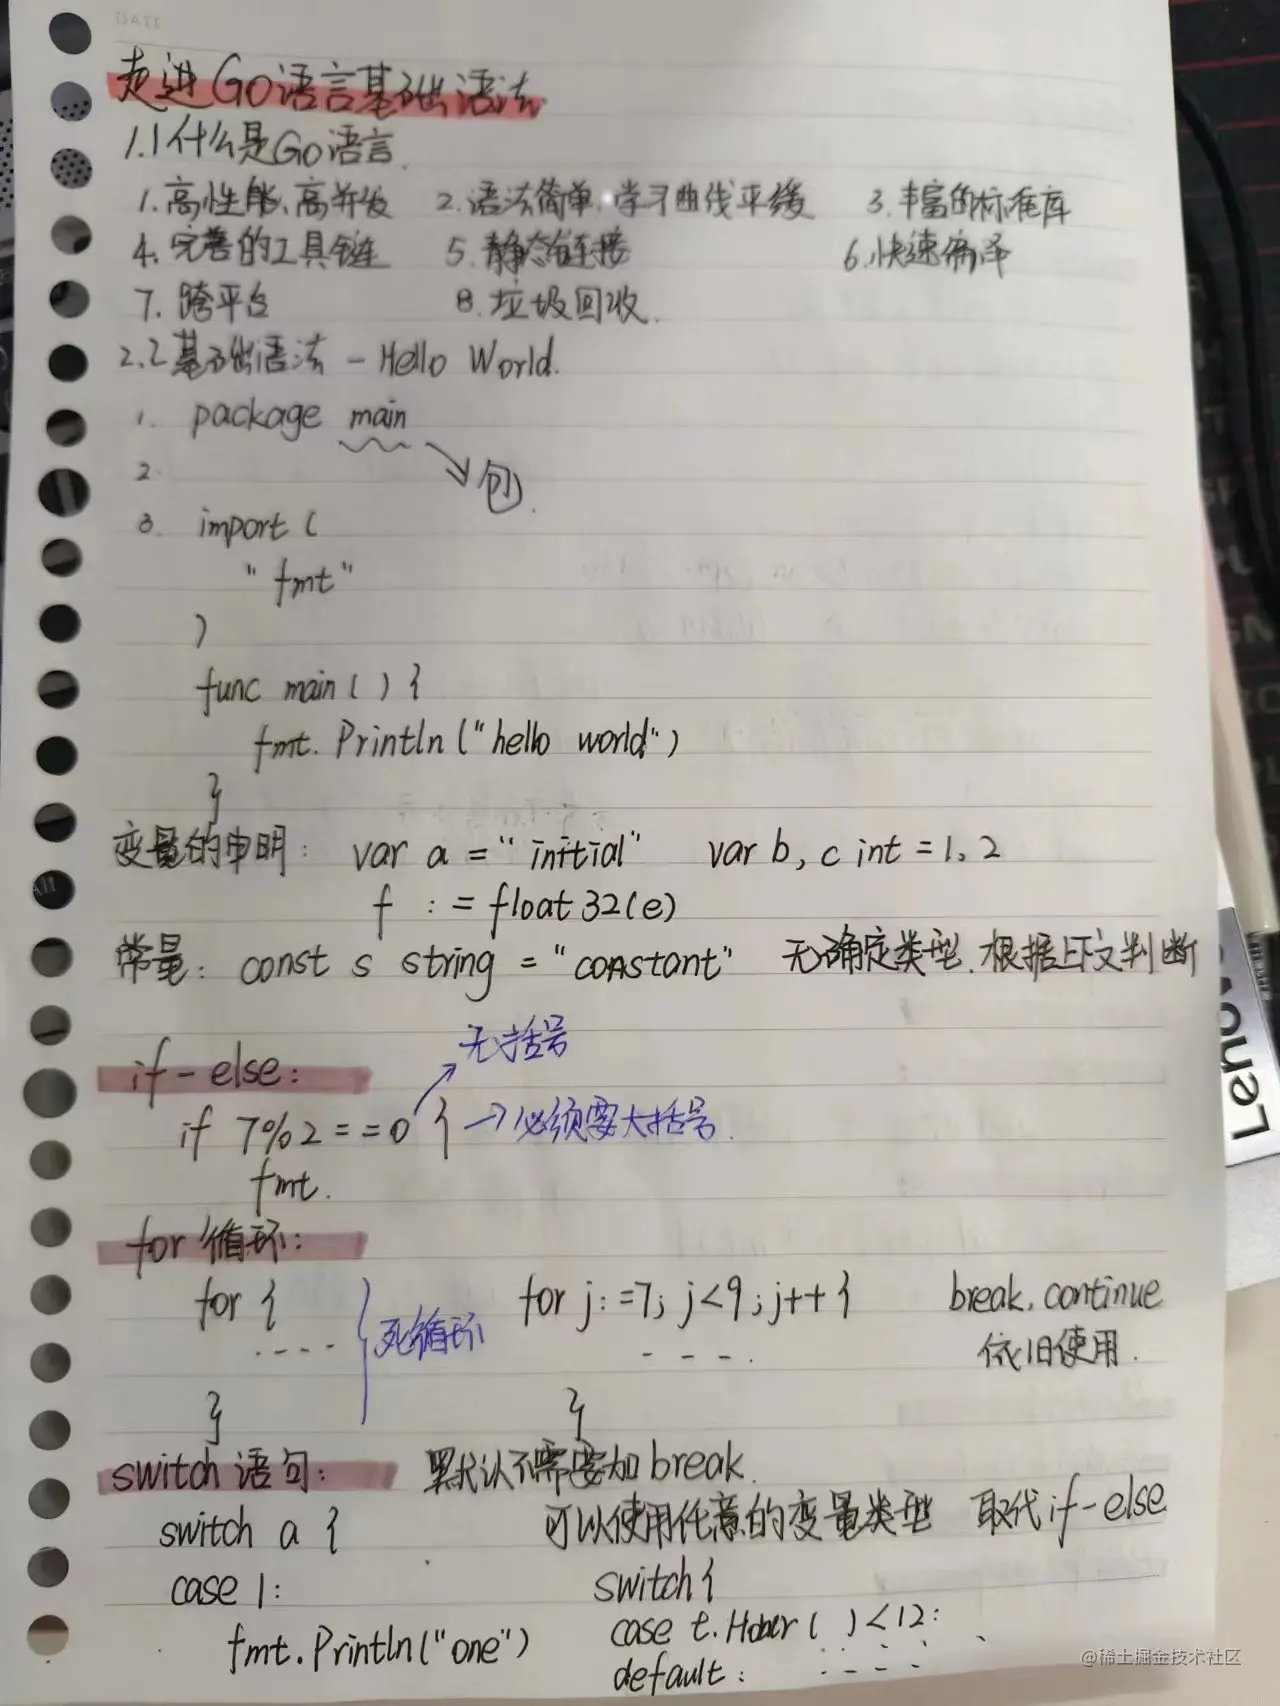 DATE
走进Go语言基础语法
1.1什么是Go语言.
1.高性能、高并发 2.语法简单、学习曲线平缓 3.丰富的标准库
4.完善的工具链 5.静态链接 6.快速编译
7.跨平台 8.垃圾回收.
2.2基础语法 - Hello World.
1. package main
2 包.
3. import (
"fmt"
)
func main ( ) {
fmt. Println ("hello world")
}
变量的申明: var a = "initial" var b, c int = 1, 2
f := float32(e)
常量: const s string = "constant" 无确定类型.根据上下文判断
无括号
if-else:
if 7%2 == 0 { →必须要大括号.
fmt.
for 循环:
for { for j: =7; j<9; j++ { break, continue
.... 死循环 - - - . 依旧使用.
} }
switch 语句: 默认不需要加break.
switch a { 可以使用任意的变量类型 取代if-else
case 1: switch {
case t.Hour ( ) <12:
fmt.Println("one")
default: ....
Lenovo
@稀土掘金技术社区